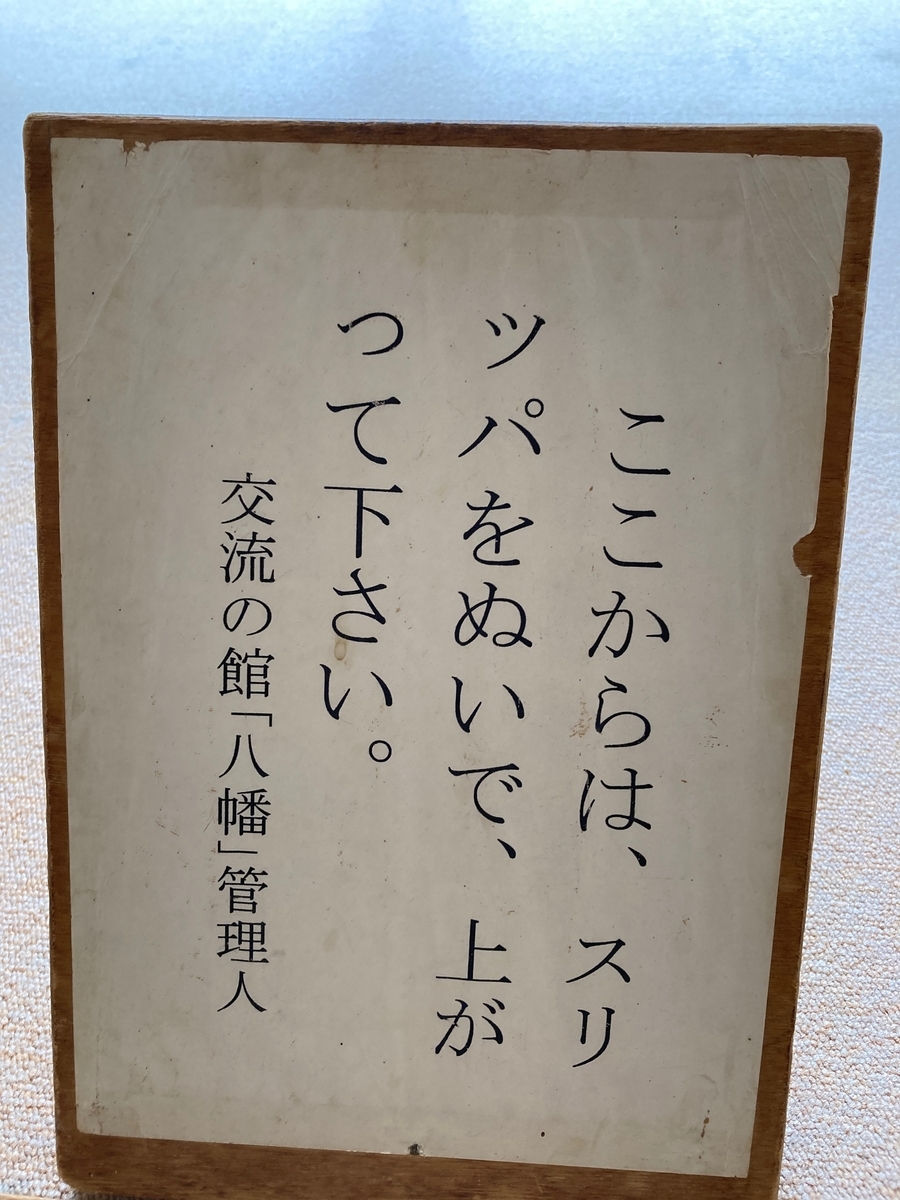 ここからは、スリ
ッパをぬいで、上が
って下さい。
交流の館「八幡」管理人